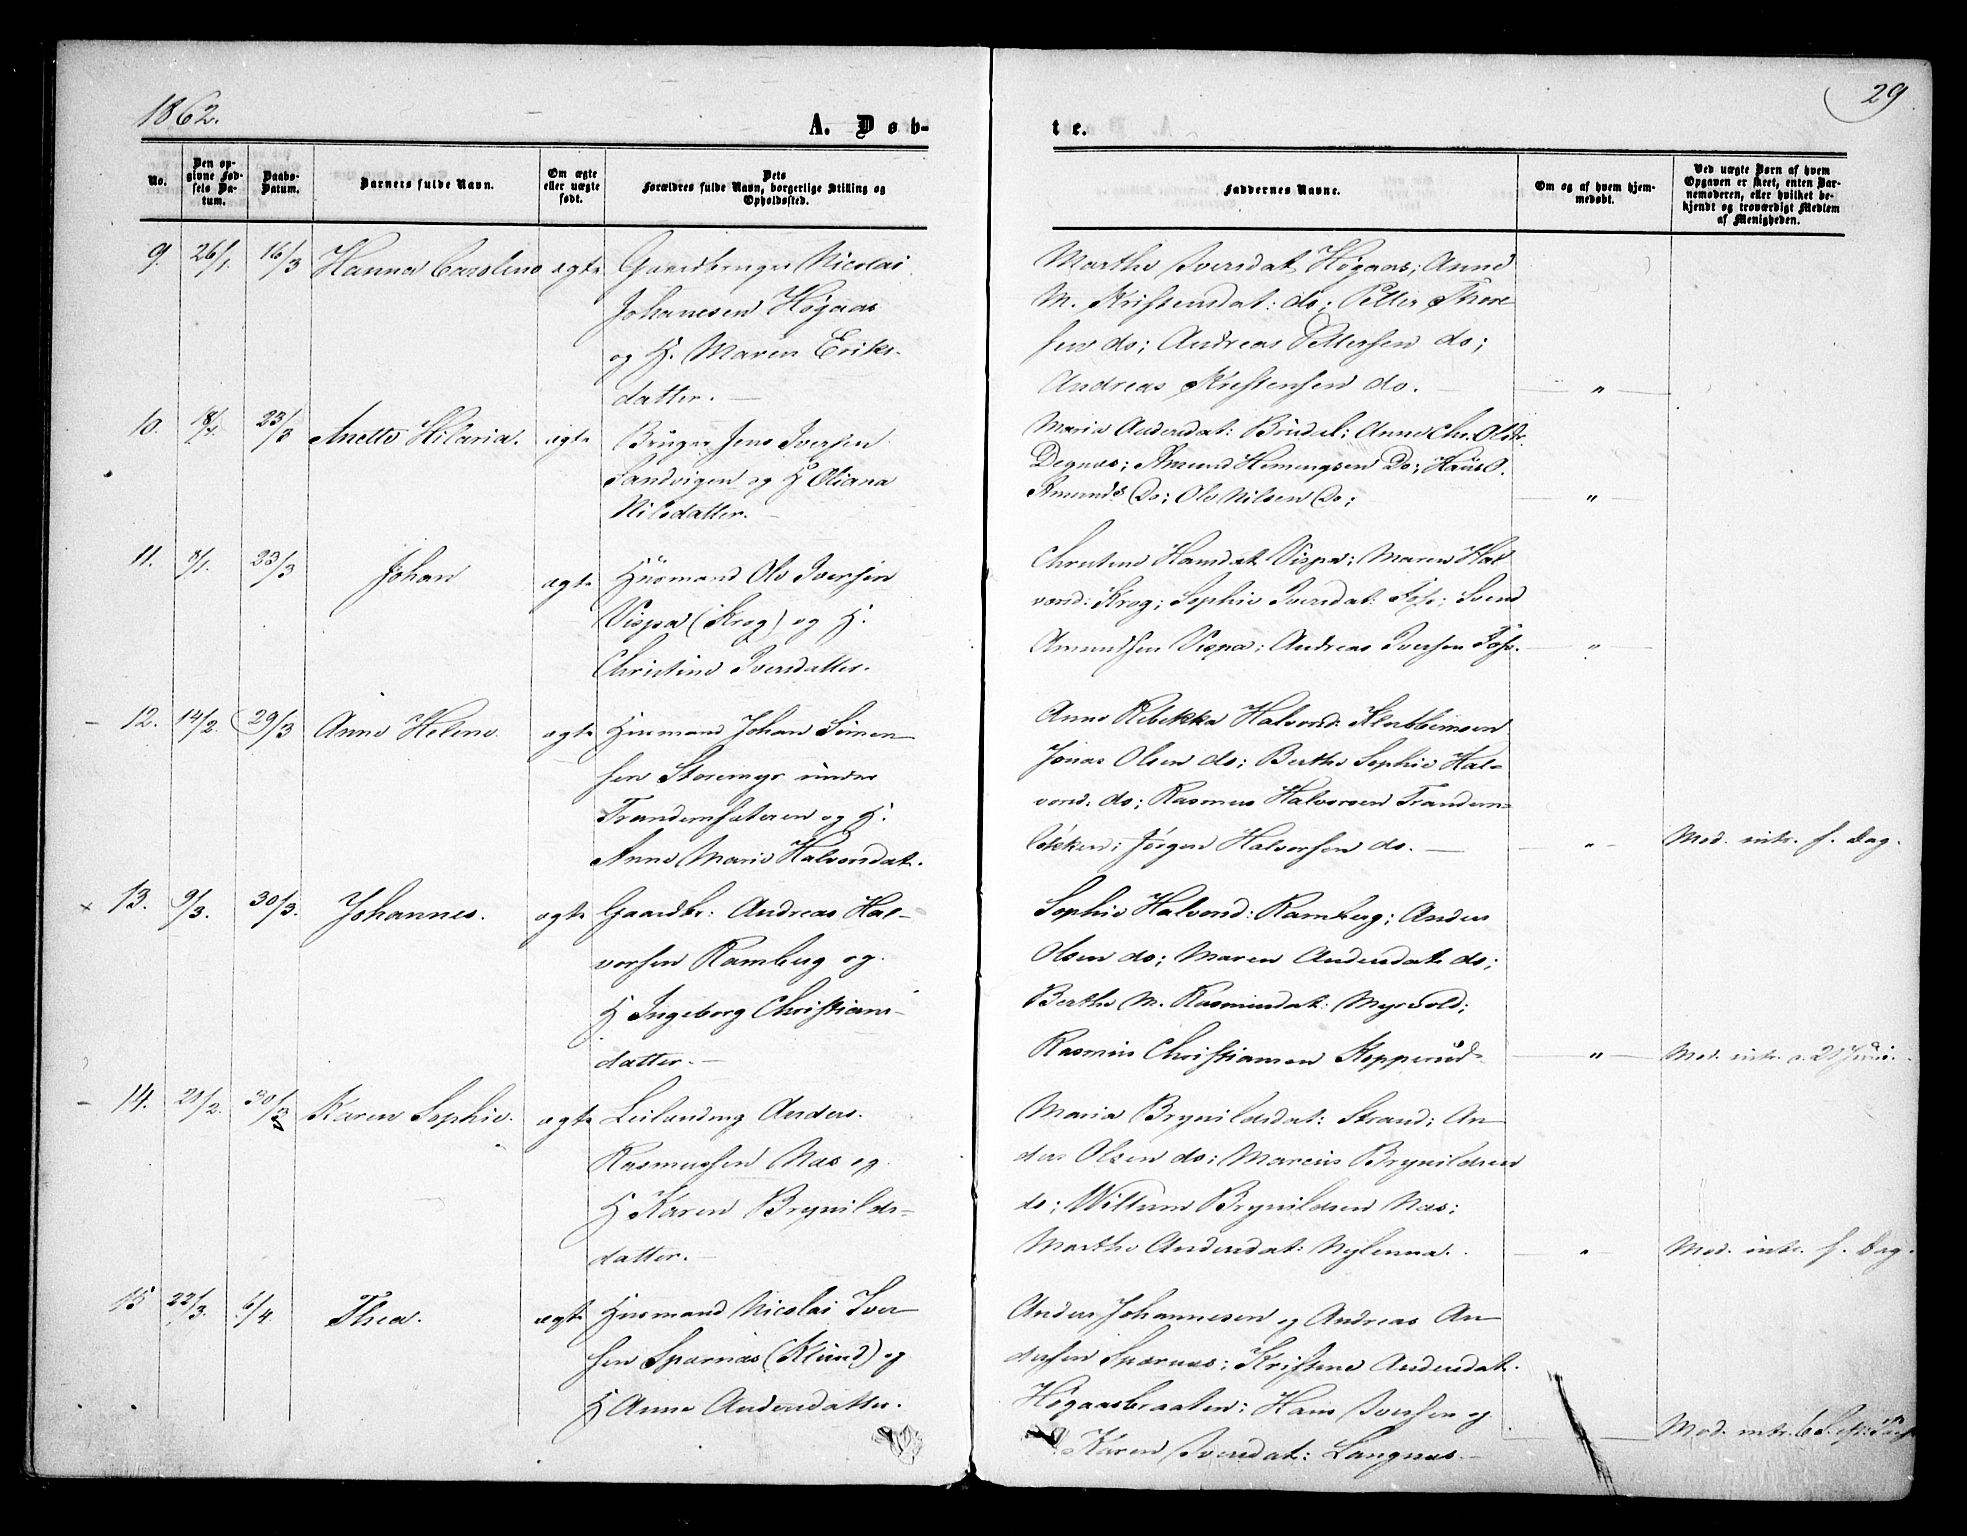 1862.
29
A. Døb-
te.
No.
Den op-
givne Fød-
sels Da-
tum.
Daabs-
Datum.
Barnets fulde Navn.
Om ægte
eller uægte
født.
Dets
Forældres fulde Navn, borgerlige Stilling og
Opholdssted.
Faddernes Navne.
Om og af hvem hjem-
medøbt.
Ved uægte Børn af hvem
Opgaven er skeet, enten Bar-
nemoderen, eller hvilket be-
kjendt og troværdigt Medlem
af Menigheden.
9. 26/1. 16/3 Hanna Caroline ægte Gaardbruger Nicolai
Johanesen Høgaas
og H. Maren Eriks-
datter. —
Marthe Iversdat Høgaas; Anne
M. Kristensdat: do; Petter Thore
sen do; Andreas Pettersen do;
Andreas Kristensen do. — "
10. 18/1. 23/3 Anette Hilaria. ægte Bruger Jens Iversen
Sandvigen og H Oliana
Nilsdatter. —
Maria Andersdat: Brudal; Anne Chr. Olsdr.
Degnæs; Amund Hemingsen Do; Hans O.
Amunds Do; Ole Nilsen Do; — " —
11. 8/1. 23/3 Johan ægte Husmand Ole Iversen
Vispa (Krog) og H.
Christine Iversdatter.
Christine Hansdat Vispa; Maren Hal
vorsd: Krog; Sophie Iversdat: Foss; Svend
Amundsen Vispa; Andreas Iversen Foss. — " —
– 12. 14/2. 29/3 Anne Helene ægte Husmand Johan Simen
sen Storemyr under
Trandemsæteren og H.
Anne Marie Halvorsdat.
Anne Rebekka Halvorsd: Klubbemoen
Jonas Olsen do; Berthe Sophie Hal-
vorsd: do; Rasmus Halvorsen Trandem-
løkken; Jörgen Halversen do. — — " — Mod. intr. s. Dag.
× 13. 9/3. 30/3. Johannes. ægte Gaardbr: Andreas Hal-
vorsen Ramberg og
H Ingeborg Christians-
datter. —
Sophie Halvorsd: Ramberg; Anders
Olsen do; Maren Andersdat: do;
Berthe M. Rasmusdat: Myrvold;
Rasmus Christiansen Kopperud — " — Mod. intr. 21 Juni.
– 14. 21/2. 30/3 Karen Sophie. ægte Leilænding Anders
Rasmussen Næs og
H Karen Brynilds-
datter. —
Maria Brynildsdat: Strand; An
ders Olsen do; Marcus Brynildsen
do; Willum Brynildsen Næs;
Marthe Andersdat: Nylenna. — " — Mod. intr. s. Dag.
15 22/3. 6/4. Thea. ægte Husmand Nicolai Iver
sen Sparnæs (Klund) og
H Anne Andersdatter.
Anders Johannesen og Andreas An
dersen Sparnæs; Kristine Andersdat.
Høgaasbraaten; Hans Iversen og
Karen Iversdat: Langnæs. — Mod. intr. 6